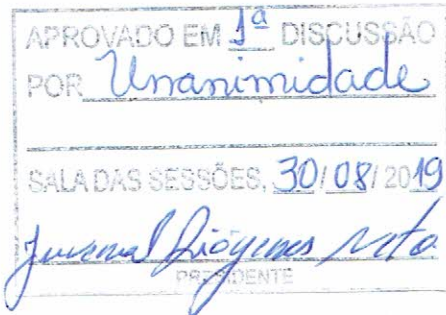 APROVADO EM 1ª DISCUSSÃO
POR Unanimidade
SALA DAS SESSÕES, 30/08/2019
Juvenal Diógenes Neto
PRESIDENTE